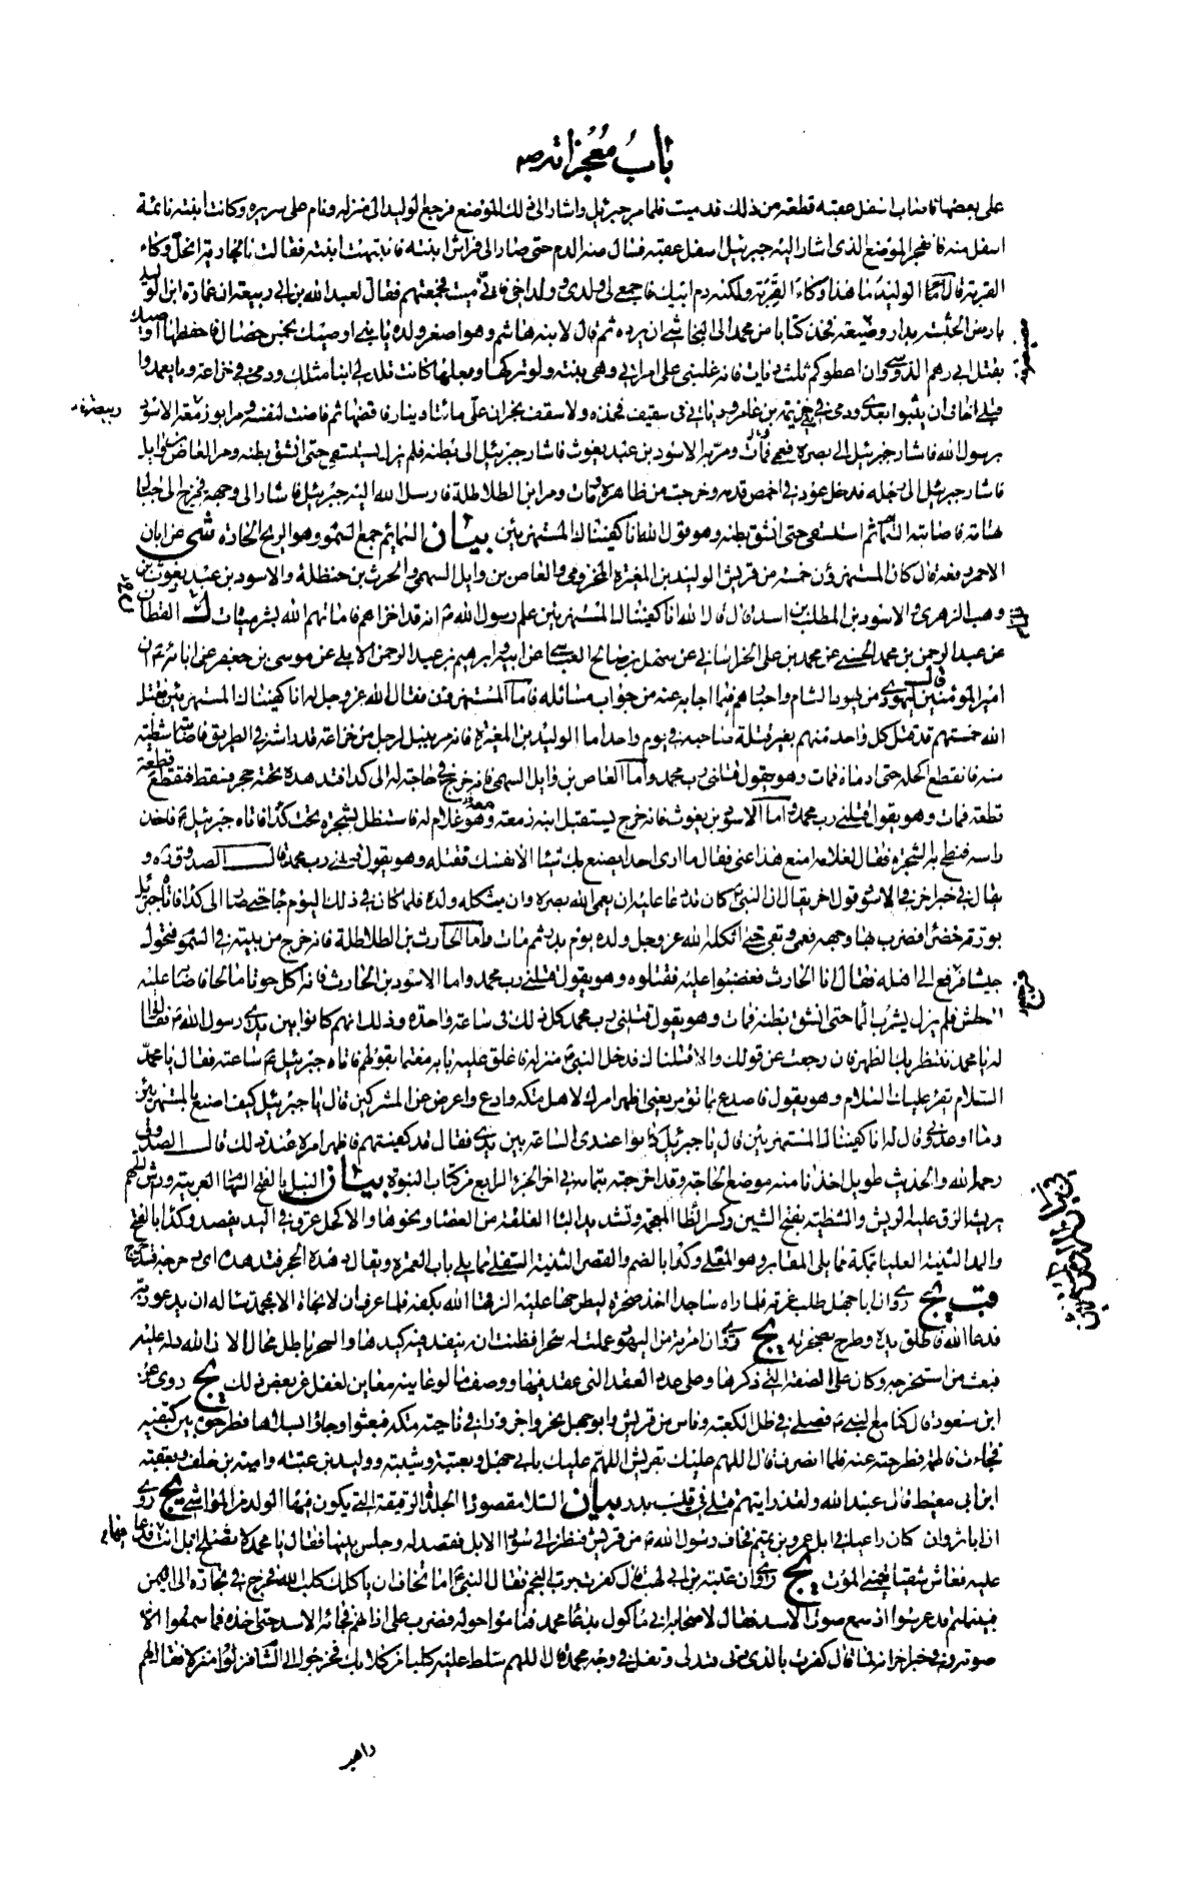 باب معجزاته ص
على بعضها فاصاب اسفل عقبه قطعة من ذلك فدميت فلما مر جبرئيل واشار الى ذلك الموضع فرجع الوليد الى منزله ونام على سريره وكانت ابنته نائمة
اسفل منه فانفجر الموضع الذى اشار اليه جبرئيل اسفل عقبه فسال منه الدم حتى صار الى فراش ابنته فانتبهت ابنته فقالت يا جارية انحل وكاء
القربة قال الوليد ما هذا وكاء القربة ولكنه دم ابيك فاجمعى لى ولدى وولد اخى فانى ميت فجمعتهم فقال لعبد الله بن ابى ربيعة ان عمارة ابن الوليد
بارض الحبشة بدار مضيعة فخذ كتابا من محمد الى النجاشى ان يرده ثم قال لابنه هاشم وهو اصغر ولده يا بنى اوصيك بخمس خصال فاحفظها اوصيك
بقتل ابى رهم الدوسى وان اعطوكم ثلث ديات فانه غلبنى على امراتى وهى بنته ولو تركها وبعلها كانت تلد لى ابنا مثلك ودمى فى خزاعة وما تعمدوا
قتلى اخاف ان ينسوا بعدى ودمى فى خزيمة بن عامر ودياتى فى سقيف فخذه ولاسقف نجران على مائتا دينار فاقضها ثم فاضت نفسه ومر ابو زمعة الاسود
برسول الله فاشار جبرئيل الى بصره فعمى ومات ومر به الاسود بن عبد يغوث فاشار جبرئيل الى بطنه فلم يزل يستسقى حتى انشق بطنه ومر العاص بن وايل
فاشار جبرئيل الى رجله فدخل عود فى اخمص قدمه وخرجت من ظاهره ومات ومر ابن الطلاطلة فارسل الله اليه جبرئيل فاشار الى وجهه فخرج الى جبال
تهامة فاصابته السمائم ثم استسقى حتى انشق بطنه وهو قول الله انا كفيناك المستهزئين بيان السمايم جمع السموم وهو الريح الحارة شى عن ابان
الاحمر رفعه قال كان المستهزؤن خمسة من قريش الوليد بن المغيرة المخزومى والعاص بن وايل السهمى والحرث بن حنظلة والاسود بن عبد يغوث بن
وهب الزهرى والاسود بن المطلب بن اسد فقال قال الله انا كفيناك المستهزئين علم رسول الله ص انه قد اخزاهم فاماتهم الله بشر ميتات ل القطان
عن عبد الرحمن بن محمد الحسنى عن محمد بن على الخراسانى عن سهل بن صالح العباسى عن ابيه وابرهيم بن عبد الرحمن الابلى عن موسى بن جعفر عن ابائه ع ان
امير المؤمنين قال ليهودى من يهود الشام واحبارهم فيما اجابه عنه من جواب مسائله فاما المستهزؤن فقال الله عز وجل له انا كفيناك المستهزئين فقتل
الله خمستهم قد قتل كل واحد منهم بغير قتلة صاحبه فى يوم واحد اما الوليد بن المغيرة فانه مر بنبل لرجل من خزاعة قد راشه فى الطريق فاصابته شظية
منه فانقطع اكحله حتى ادماه فمات وهو يقول قتلنى رب محمد واما العاص بن وايل السهمى فانه خرج فى حاجة له الى كداء فتدهده تحته حجر فسقط فتقطع قطعة
قطعة فمات وهو يقول قتلنى رب محمد واما الاسود بن يغوث فانه خرج يستقبل ابنه زمعة ومعه غلام له فاستظل بشجرة تحت كداء فاتاه جبرئيل ع فاخذ
راسه فنطح به الشجرة فقال لغلامه امنع هذا عنى فقال ما ارى احدا يصنع بك شيئا الا نفسك فقتله وهو يقول قتلنى رب محمد قال الصدوق ره و
يقال فى خبر اخر فى الاسود قول اخر يقال ان النبى ص كان قد دعا عليه ان يعمى الله بصره وان يثكله ولده فلما كان فى ذلك اليوم جاء حتى صار الى كداء فاتاه جبرئيل
بورقة خضراء فضرب بها وجهه فعمى وبقى حتى اثكله الله عز وجل ولده يوم بدر ثم مات واما الحارث بن الطلاطلة فانه خرج من بيته فى السموم فتحول
حبشيا فرجع الى اهله فقال انا الحارث فغضبوا عليه فقتلوه وهو يقول قتلنى رب محمد واما الاسود بن الحارث فانه اكل حوتا مالحا فاصابه عليه
العطش فلم يزل يشرب الماء حتى انشق بطنه فمات وهو يقول قتلنى رب محمد كل ذلك فى ساعة واحدة وذلك انهم كانوا بين يدى رسول الله ص فقالوا
له يا محمد ننتظر بك الظهر فان رجعت عن قولك والا قتلناك فدخل النبى ص منزله فاغلق عليه بابه مغتما بقولهم فاتاه جبرئيل ع ساعته فقال يا محمد
السلام يقرء عليك السلام وهو يقول فاصدع بما تؤمر يعنى اظهر امرك لاهل مكة وادع واعرض عن المشركين قال يا جبرئيل كيف اصنع بالمستهزئين
وما اوعدونى قال له انا كفيناك المستهزئين قال يا جبرئيل كانوا عندى الساعة بين يدى فقال قد كفيتهم فاظهر امره عند ذلك قال الصدوق
رحمه الله والحديث طويل اخذنا منه موضع الحاجة وقد اخرجته بتمامه فى اخر الجزء الرابع من كتاب النبوة بيان النبل بالفتح السهام العربية وراش السهم
يريشه الزق عليه الريش والشظية بفتح الشين وكسر الظاء المعجمة وتشديد الياء الفلقة من العصا ونحوها والاكحل عرق فى اليد يفصد وكداء بالفتح
والمد الثنية العليا بمكة مما يلى المقابر وهو المعلى وكدا بالضم والقصر الثنية السفلى مما يلى باب العمرة ويقال دهده الحجر فتدهده اى دحرجه فتدحرج
قب يج روى ان ابا جهل طلب غرته فلما راه ساجدا اخذ صخرة ليطرحها عليه الزقها الله بكفه فلما عرف ان لا نجاة الا بمحمد ساله ان يدعو ربه
فدعا الله فاطلق يده وطرح صخرته يج روى ان امراة من اليهود عملت له سحرا فظنت ان ينفذ فيه كيدها والسحر باطل محال الا ان الله دله عليه
فبعث من استخرجه وكان على الصفة التى ذكرها وعلى عدد العقد التى عقد فيها ووصف ما لو عاينه معاين لغفل عن بعض ذلك يج روى عن
ابن مسعود قال كنا مع النبى ص فصلى فى ظل الكعبة وناس من قريش وابو جهل نحروا جزورا فى ناحية مكة فبعثوا وجاؤا بسلاها فطرحوه بين كتفيه
فجاءت فاطمة فطرحته عنه فلما انصرف قال اللهم عليك بقريش اللهم عليك بابى جهل وبعتبة وشيبة ووليد بن عتبة وامية بن خلف وبعقبة
ابن ابى معيط قال عبد الله ولقد رايتهم قتلى فى قليب بدر بيان السلا مقصورا الجلدة الرقيقة التى يكون فيها الولد من المواشى يج روى
ان ابا ثروان كان راعيا فى ابل عمرو بن تميم فخاف رسول الله ص من قريش فنظر الى سواد الابل فقصد له وجلس بينها فقال يا محمد لا تصلح ابل انت فيها فدعا
عليه فعاش شقيا يتمنى الموت يج روى ان عتبة بن ابى لهب قال كفرت برب النجم فقال النبى ص اما تخاف ان ياكلك كلب الله فخرج فى تجارة الى اليمن
فبينما هم قد عرسوا اذ سمع صوت الاسد فقال لاصحابه انى ماكول بدعاء محمد فناموا حوله فضرب على اذانهم فجاءه الاسد حتى اخذه فما سمعوا الا
صوته وفى خبر اخر انه قال كفرت بالذى دنى فتدلى وتفل فى وجه محمد قال اللهم سلط عليه كلبا من كلابك فخرجوا الى الشام فنزلوا منزلا فقال لهم
راهب